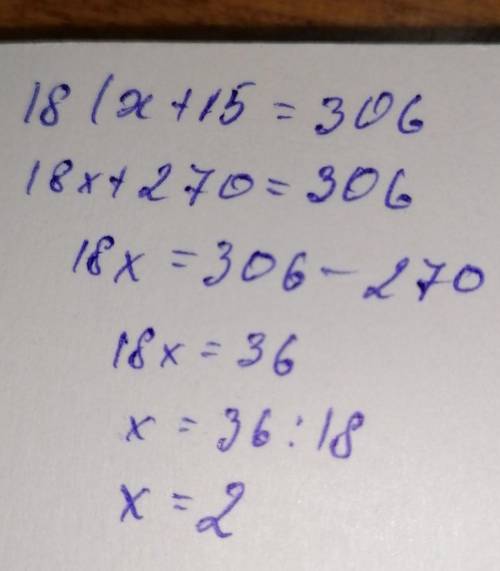 18(x+15=306
18x+270=306
18x=306-270
18x=36
x=36:18
x=2